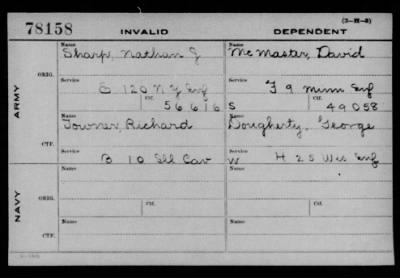 (3-H-3)
78158 INVALID DEPENDENT
Name Name
Sharp, Nathan J McMaster, David
ORIG. Service Service
E 120 N Y Inf F 9 Minn Inf
Ctf. Ctf.
56616 S 49058
ARMY
Name Name
Towner, Richard Dougherty, George
CTF. Service Service
B 10 Ill Cav W H 25 Wis Inf
Name Name
ORIG. Ctf. Ctf.
NAVY
Name Name
CTF.